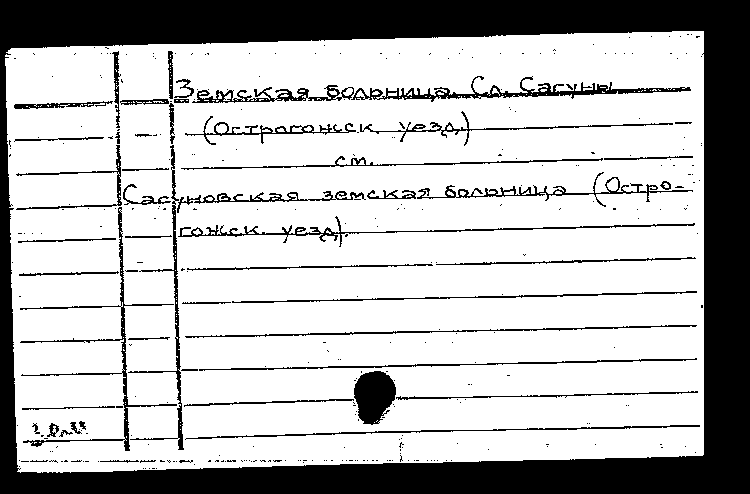 Земская больница. Сл. Сагуны
(Острогожск. уезд.)
см.
Сагуновская земская больница (Остро-
гожск. уезд).